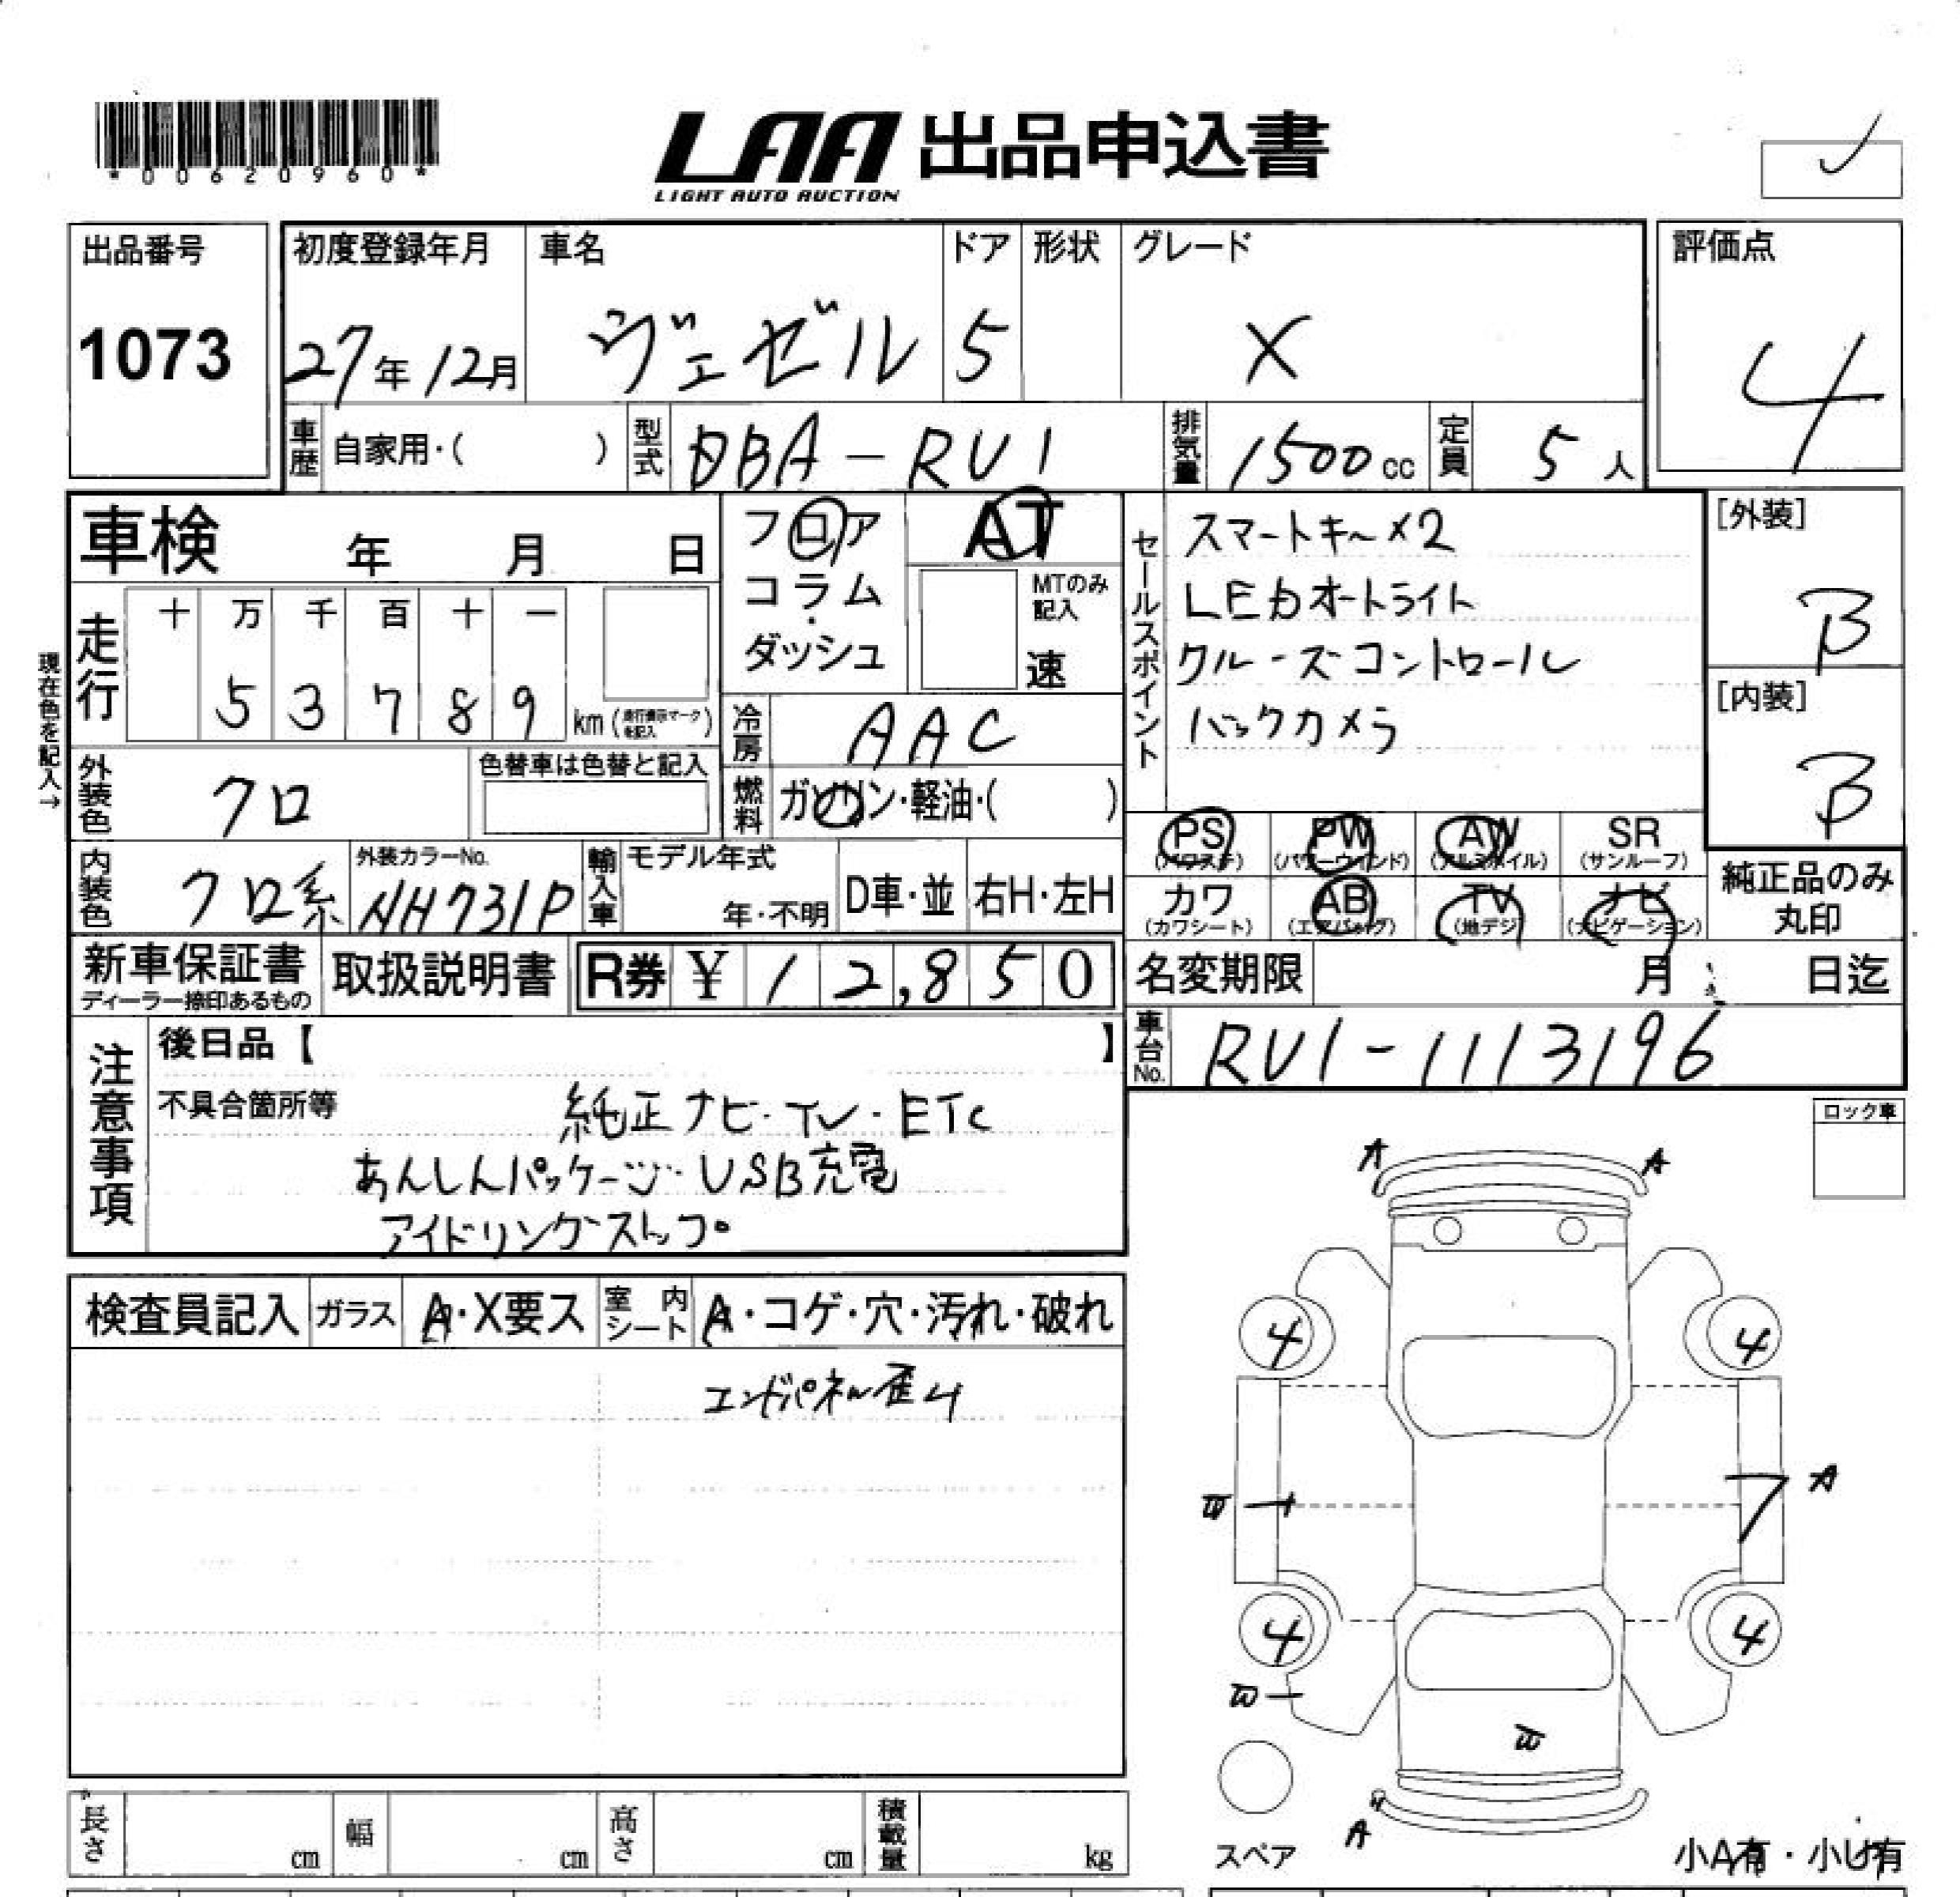 *00620960*
LAA 出品申込書
LIGHT AUTO AUCTION
出品番号
1073
初度登録年月
27年12月
車名
ヴェゼル
ドア
5
形状
グレード
X
評価点
4
車歴
自家用・( )
型式
DBA-RU1
排気量
1500cc
定員
5人
車検 年 月 日
フロア
コラム
・
ダッシュ
AT
MTのみ記入
速
セールスポイント
スマートキー×2
LEDオートライト
クルーズコントロール
バックカメラ
[外装]
B
[内装]
B
現在色を記入→
走行
十 万 千 百 十 一
5 3 7 8 9 km(走行表示マークを記入)
冷房
AAC
外装色
クロ
色替車は色替と記入
燃料
ガソリン・軽油・( )
PS (パワステ)
PW (パワーウインド)
AW (アルミホイル)
SR (サンルーフ)
カワ (カワシート)
AB (エアバッグ)
TV (地デジ)
ナビ (ナビゲーション)
純正品のみ
丸印
内装色
クロ系
外装カラーNo.
NH731P
輸入車
モデル年式
年・不明
D車・並
右H・左H
新車保証書
ディーラー捺印あるもの
取扱説明書
R券 ¥12,850
名変期限 月 日迄
車台No.
RU1-1113196
注意事項
後日品【 】
不具合箇所等
純正ナビ・TV・ETC
あんしんパッケージ・USB充電
アイドリングストップ
ロック車
A A
検査員記入
ガラス
A・X要ス
室内シート
A・コゲ・穴・汚れ・破れ
エンドパネル歪ム
4 4
A
4 4
A
スペア
小A有・小U有
長さ cm
幅 cm
高さ cm
積載量 kg